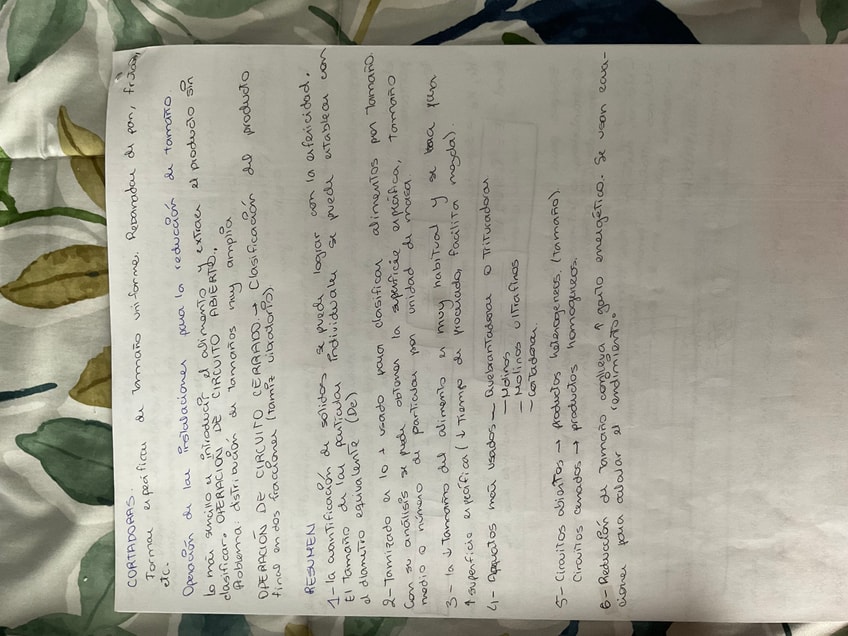 CORTADORAS.
Formas específicas de Tamaño uniforme. Rebanadas de pan, frutas,
etc.
Operación de las instalaciones para la reducción de Tamaño
Lo más sencillo es introducir el alimento y extraer el producto sin
clasificar. OPERACIÓN DE CIRCUITO ABIERTO.
Problema: distribución de Tamaños muy amplia
OPERACIÓN DE CIRCUITO CERRADO → Clasificación del producto
final en dos fracciones (Tamiz vibratorio)
RESUMEN
1- La cuantificación de sólidos se puede lograr con la esfericidad.
El Tamaño de las partículas individuales se puede establecer con
el diametro equivalente (De)
2- Tamizado es lo + usado para clasificar alimentos por Tamaño.
Con su análisis se puede obtener la superficie específica, Tamaño
medio o número de partículas por unidad de masa.
3- La ↓ Tamaño del alimento es muy habitual y se hace para
↑ superficie específica (↓ Tiempo de procesado, facilita mezcla).
4- Aparatos más usados - Quebrantadoras o Trituradoras
- Molinos
- Molinos ultrafinos
- Cortadoras
5- Circuitos abiertos → productos heterogeneos. (Tamaño).
Circuitos cerrados → productos homogeneos.
6- Reducción de Tamaño conlleva ↑ gasto energético. Se usan ecua-
ciones para calcular el rendimiento.